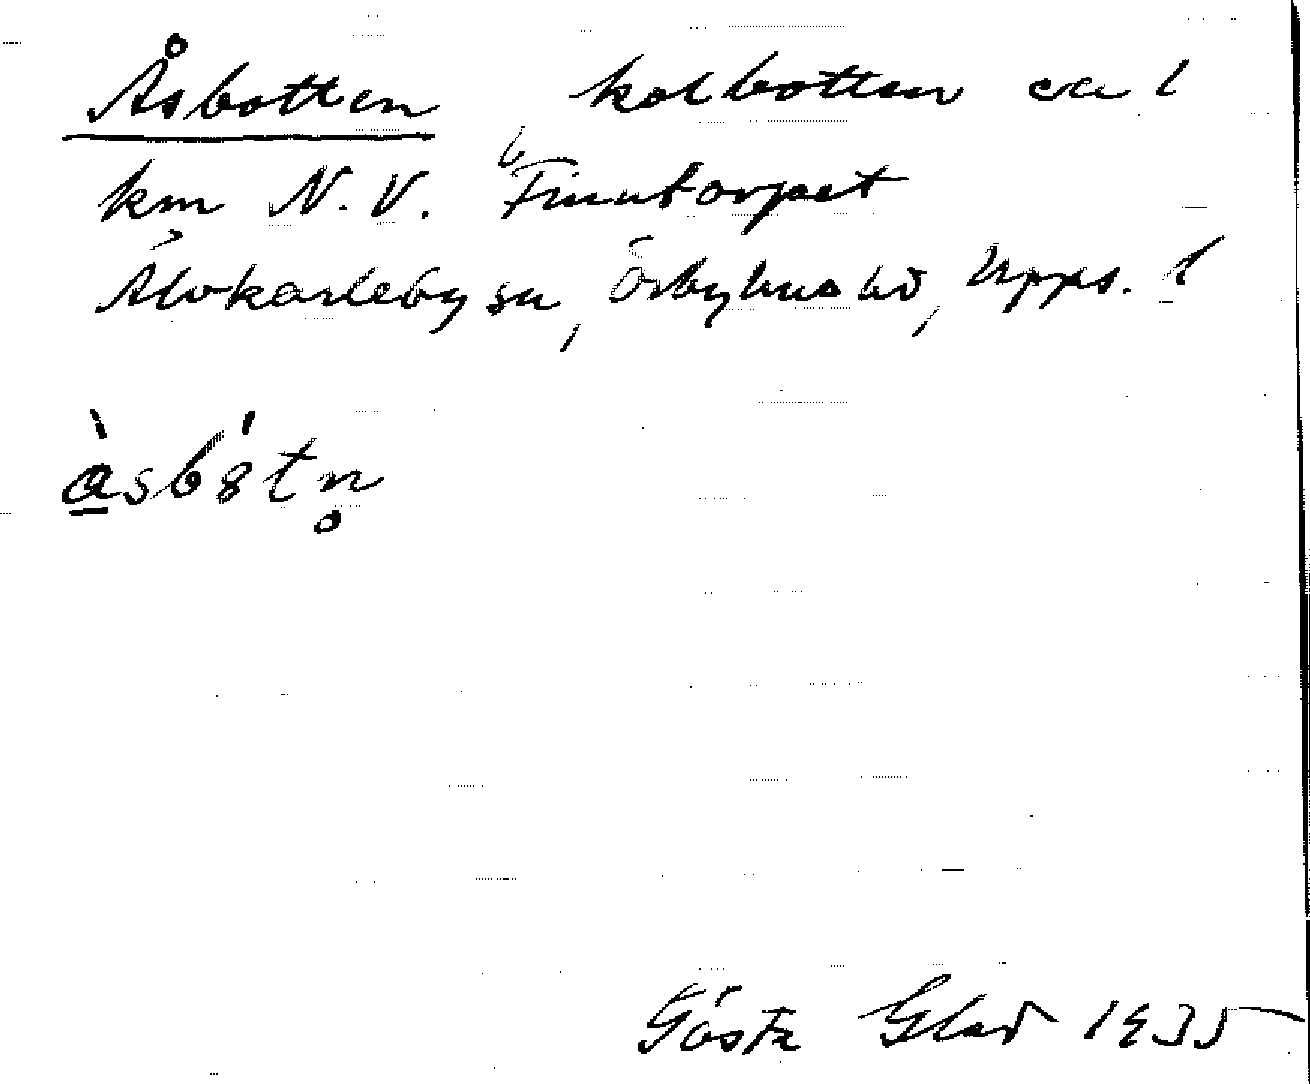 Åsbotten kolbotten ca 1
km N.V. Finntorpet
Älvkarleby sn, Örbyhus hd, Upps. l
àsbótn̥
Gösta Glad 1935